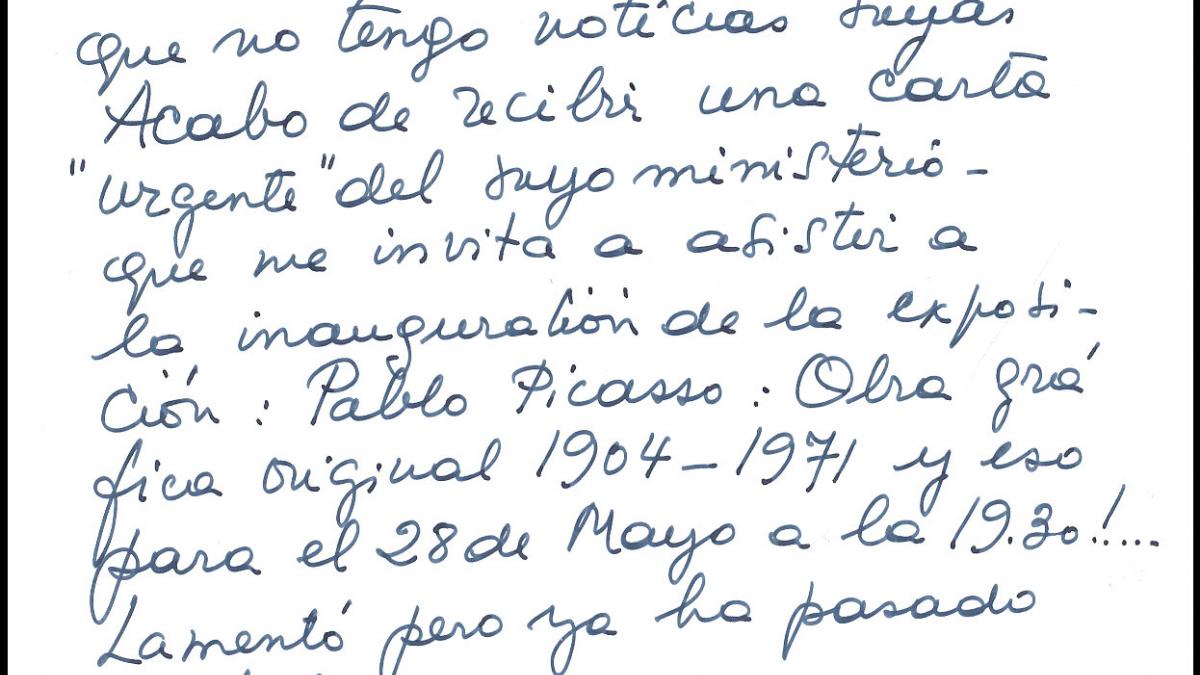 que no tengo noticias suyas
Acabo de recibir una carta
"urgente" del suyo ministerio -
que me invita a asistir a
la inauguración de la exposi-
ción : Pablo Picasso : Obra grá
fica original 1904-1971 y eso
para el 28 de Mayo a la 19.30!...
Lamentó pero ya ha pasado